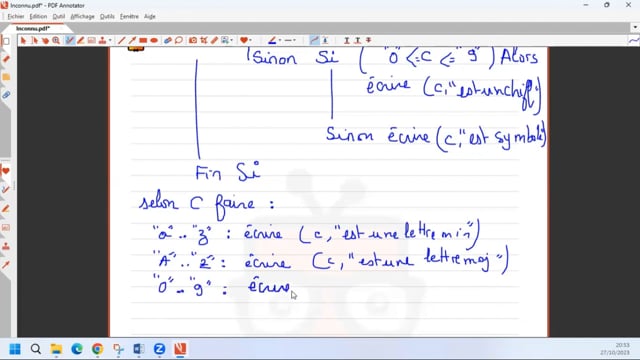 Inconnu.pdf* - PDF Annotator
Fichier Edition Affichage Insertion Annotation Document Outils Fenêtre Aide
Inconnu.pdf*
Sinon Si ( "0" <= C <= "9" ) Alors
écrire (c, "est un chiff
Sinon écrire (c, "est symbole")
Fin Si
selon C faire :
"a" .. "z" : écrire (c, "est une lettre min")
"A" .. "Z" : écrire (c, "est une lettre maj")
"0" .. "9" : écrire
20:53
27/10/2023